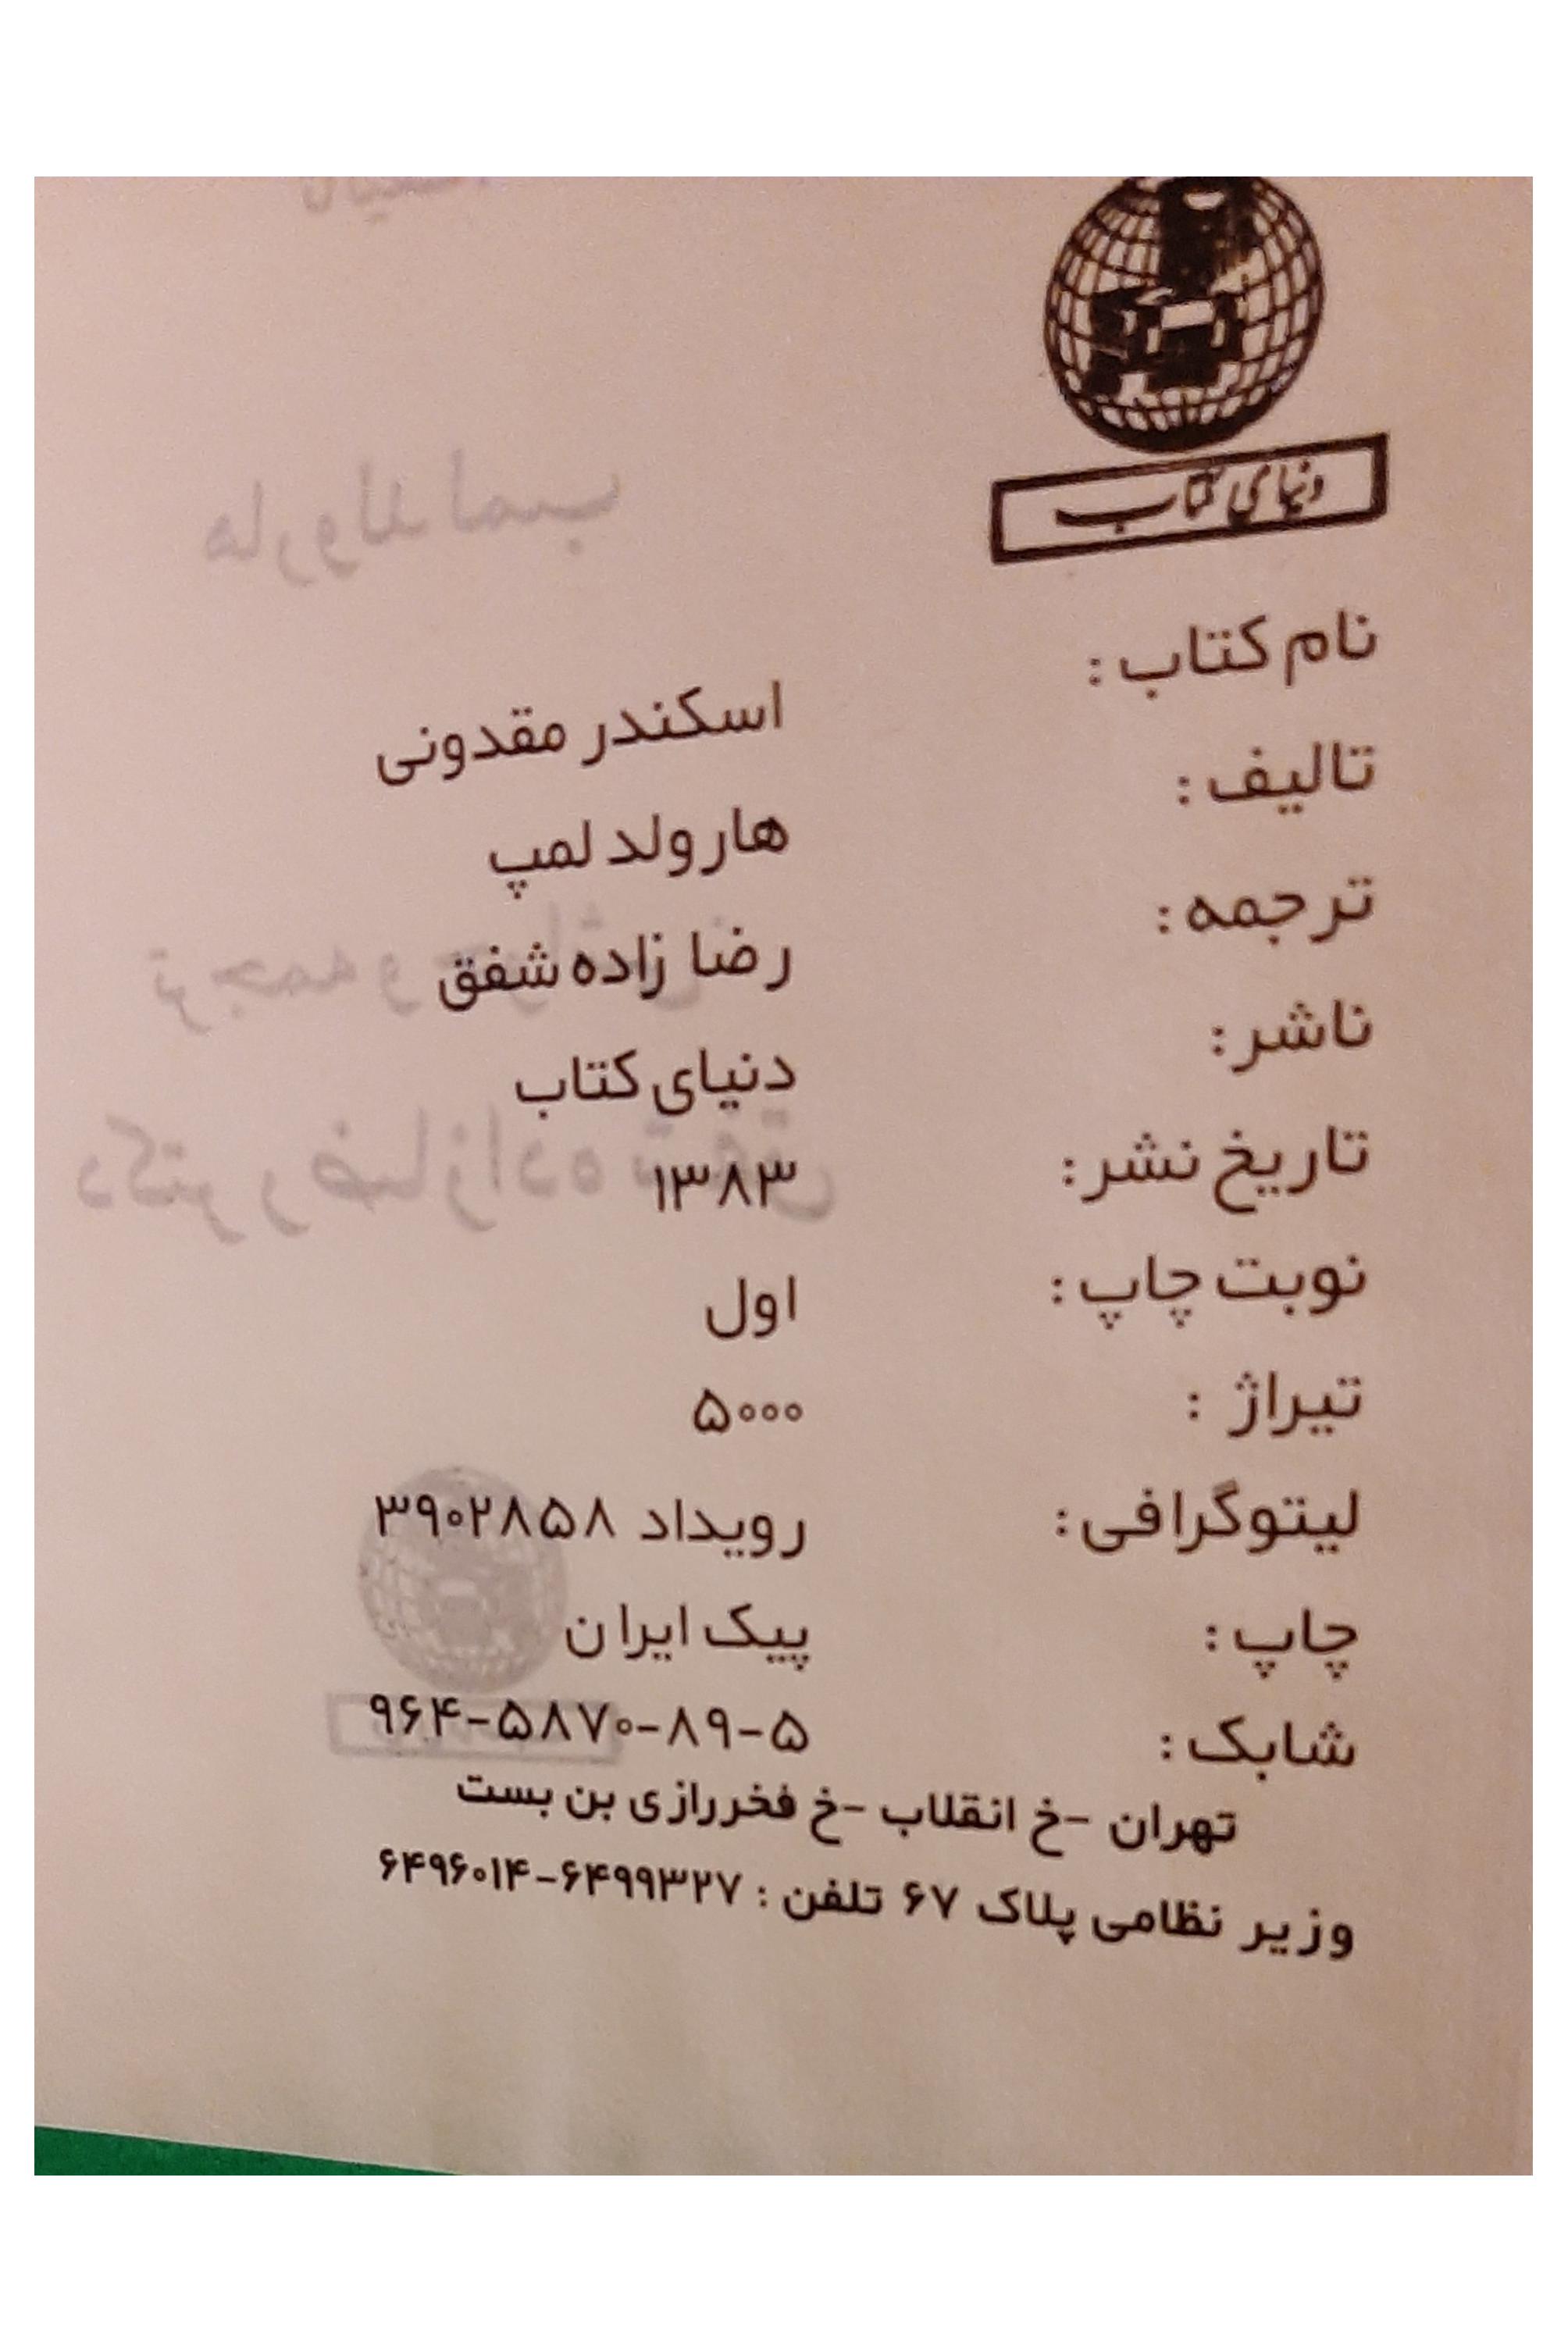 دنیای کتاب
نام کتاب : اسکندر مقدونی
تالیف : هارولد لمپ
ترجمه : رضا زاده شفق
ناشر : دنیای کتاب
تاریخ نشر : ۱۳۸۳
نوبت چاپ : اول
تیراژ : ۵۰۰۰
لیتوگرافی : رویداد ۳۹۰۲۸۵۸
چاپ : پیک ایران
شابک : ۹۶۴-۵۸۷۰-۸۹-۵
تهران -خ انقلاب -خ فخررازی بن بست
وزیر نظامی پلاک ۶۷ تلفن : ۶۴۹۹۳۲۷-۶۴۹۶۰۱۴